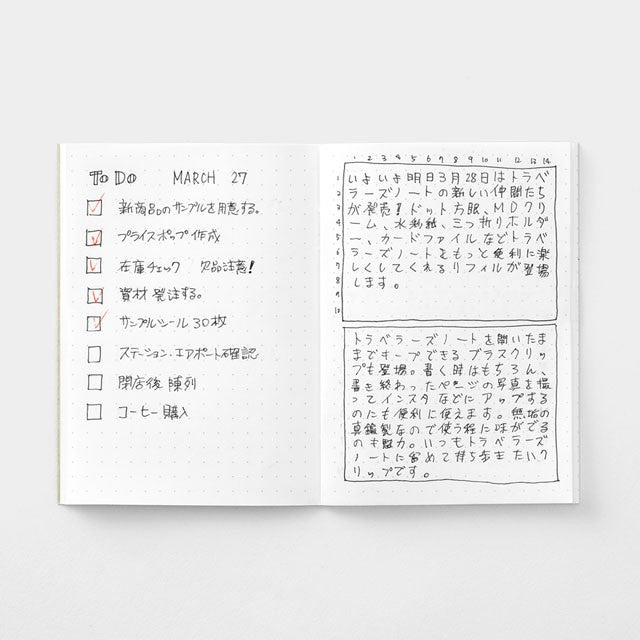 To Do MARCH 27
新商品のサンプルを用意する。
プライスポップ作成
在庫チェック 欠品注意!
資材発注する。
サンプルシール30枚
ステーション・エアポート確認
閉店後 陳列
コーヒー購入
1 2 3 4 5 6 7 8 9 10 11 12 13 14
1
2
3
4
5
6
7
8
9
10
いよいよ明日3月28日はトラベ
ラーズノートの新しい仲間たち
が発売!ドット方眼、MDクリ
ーム、水彩紙、三つ折りホルダ
ー、カードファイルなどトラベ
ラーズノートをもっと便利に楽
しくしてくれるリフィルが登場
します。
トラベラーズノートを開いたま
まキープできるブラスクリッ
プも登場。書く時はもちろん、
書き終わったページの写真を撮
ってインスタなどにアップする
のにも便利に使えます。無垢の
真鍮製なので使う程に味がでる
のも魅力。いつもトラベラーズ
ノートに留めて持ち歩きたいク
リップです。